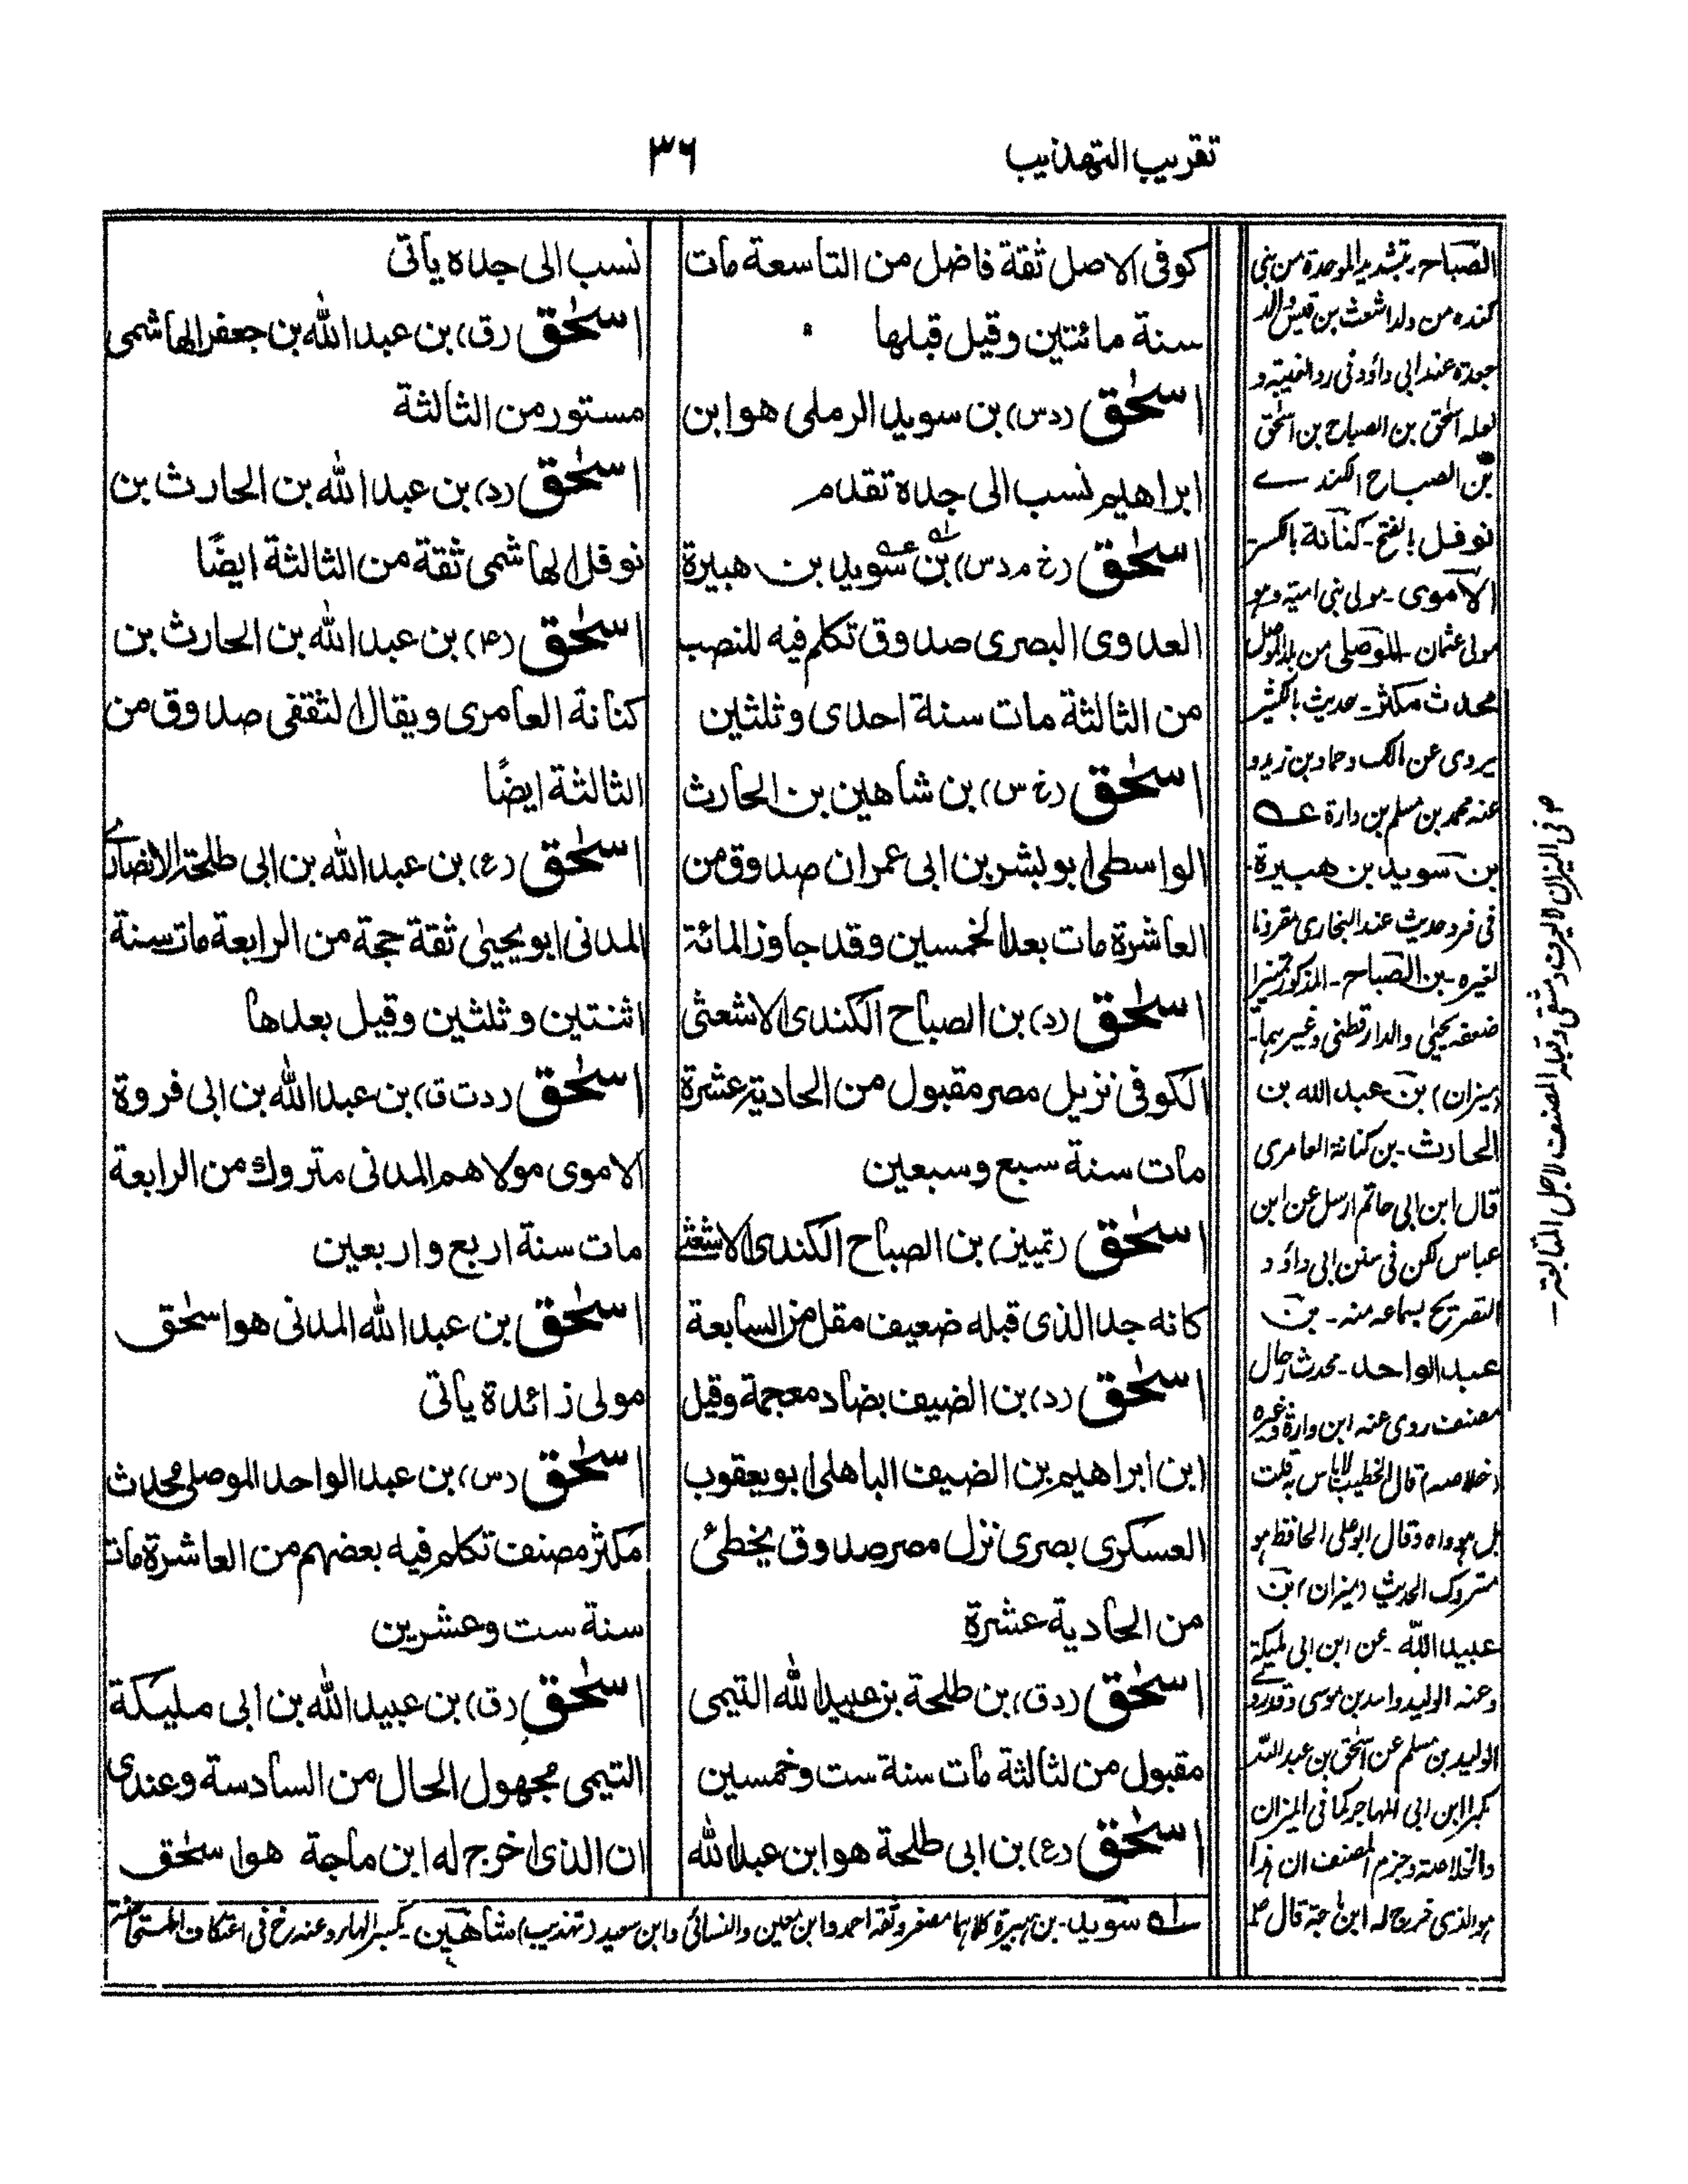 تقريب التهذيب
٣٦
كوفى الاصل ثقة فاضل من التاسعة مات
سنة مائتين وقيل قبلها
اسحٰق (دس) بن سويد الرملى هو ابن
ابراهيم نسب الى جده تقدم
اسحٰق (خ م د س) بن سويد بن هبيرة
العدوى البصرى صدوق تكلم فيه للنصب
من الثالثة مات سنة احدى وثلثين
اسحٰق (خ س) بن شاهين بن الحارث
الواسطى ابو بشر بن ابى عمران صدوق من
العاشرة مات بعد الخمسين وقد جاوز المائة
اسحٰق (د) بن الصباح الكندى الاشعثى
الكوفى نزيل مصر مقبول من الحادية عشرة
مات سنة سبع وسبعين
اسحٰق (تمييز) بن الصباح الكندى الاشعثى
كانه جد الذى قبله ضعيف مقل من السابعة
اسحٰق (د) بن الضيف بضاد معجمة وقيل
ابن ابراهيم بن الضيف الباهلى ابو يعقوب
العسكرى بصرى نزل مصر صدوق يخطئ
من الحادية عشرة
اسحٰق (د ق) بن طلحة بن عبيد الله التيمى
مقبول من الثالثة مات سنة ست وخمسين
اسحٰق (ع) بن ابى طلحة هو ابن عبد الله
نسب الى جده يأتى
اسحٰق (ق) بن عبد الله بن جعفر الهاشمى
مستور من الثالثة
اسحٰق (د) بن عبد الله بن الحارث بن
نوفل الهاشمى ثقة من الثالثة ايضًا
اسحٰق (٤) بن عبد الله بن الحارث بن
كنانة العامرى ويقال الثقفى صدوق من
الثالثة ايضًا
اسحٰق (ع) بن عبد الله بن ابى طلحة الانصارى
المدنى ابو يحيىٰ ثقة حجة من الرابعة مات سنة
اثنتين وثلثين وقيل بعدها
اسحٰق (د ت ق) بن عبد الله بن ابى فروة
الاموى مولاهم المدنى متروك من الرابعة
مات سنة اربع واربعين
اسحٰق بن عبد الله المدنى هو اسحٰق
مولى زائدة يأتى
اسحٰق (س) بن عبد الواحد الموصلى محدث
مكثر مصنف تكلم فيه بعضهم من العاشرة مات
سنة ست وعشرين
اسحٰق (ق) بن عبيد الله بن ابى مليكة
التيمى مجهول الحال من السادسة وعندى
ان الذى اخرج له ابن ماجة هو اسحٰق
الصباح بتشديد الموحدة من بنى
كنده من ولد اشعث بن قيس
عند ابى داؤد فى رد الغيبة و
لعله اسحٰق بن الصباح بن اسحٰق
بن الصباح الكندے
نوفل بالفتح ـ كنانة بالكسر ـ
الاموى ـ مولى بنى امية وهو
مولى عثمان ـ الموصلى من بلد الموصل
محدث مكثر ـ حديث بالكثير
يروى عن مالك وحماد بن زيد و
عنه محمد بن مسلم بن وارة
بن سويد بن هبيرة ـ
فى فرد حديث عند البخارى مقرونا
لغيره ـ بن الصباح ـ المذكور تمييزا
ضعفه يحيىٰ والدارقطنى وغيرهما ـ
(ميزان) بن عبد الله بن
الحارث ـ بن كنانة العامرى
قال ابن ابى حاتم ارسل عن ابن
عباس لكن فى سنن ابى داؤد
التصريح بسماعه منه ـ بن
عبد الواحد ـ محدث رحال
مصنف روى عنه ابن وارة وغيره
(خلاصه) قال الخطيب لاباس به قلت
بل هو واه وقال ابو على الحافظ هو
متروك الحديث (ميزان) بن
عبيد الله ـ عن ابن ابى مليكة
وعنه الوليد واسد بن موسى وقد روے
الوليد بن مسلم عن اسحٰق بن عبد الله
ابن ابى المهاجر كما فى الميزان
والخلاصة وجزم المصنف ان هذا
هو الذى خرج له ابن ماجة قال
فى الميزان لا يعرف دمشقى وقبله المصنف لاجل المتابعة ـ
سويد ـ بن هبيرة كلاهما مصغر وثقه احمد وابن معين والنسائى وابن سعيد (تهذيب) شاهين ـ بكسر الهاء وعنه خ فى اعتكاف المستحاضة